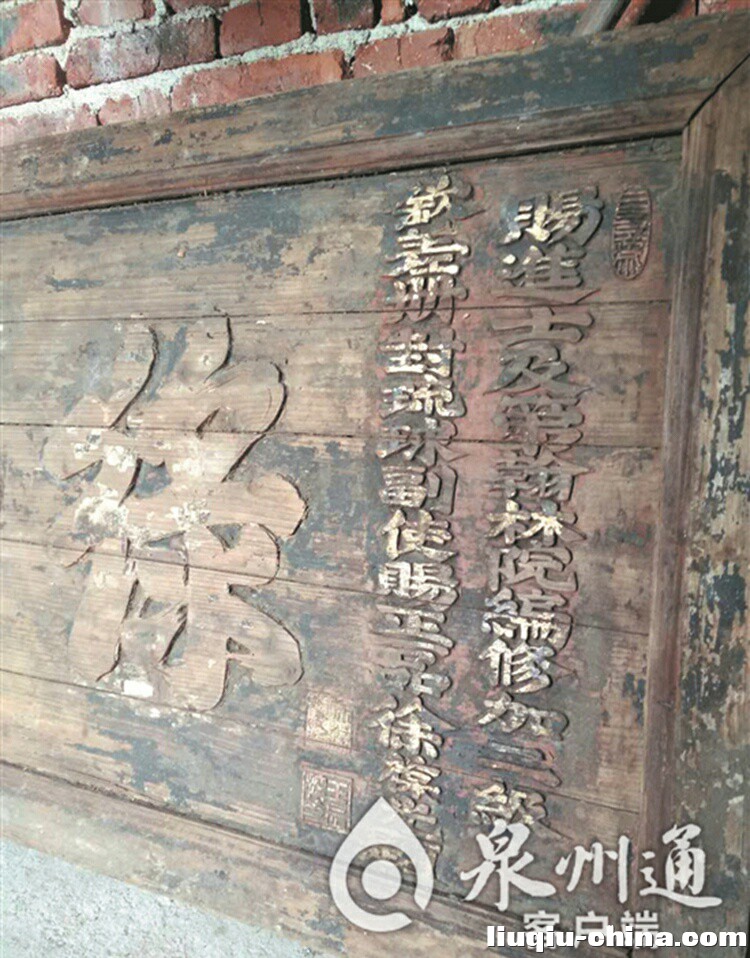 賜進士及第翰林院編修加二級
差冊封琉球副使賜正一品徐葆光
泉州通
客户端
liuqiu-china.com